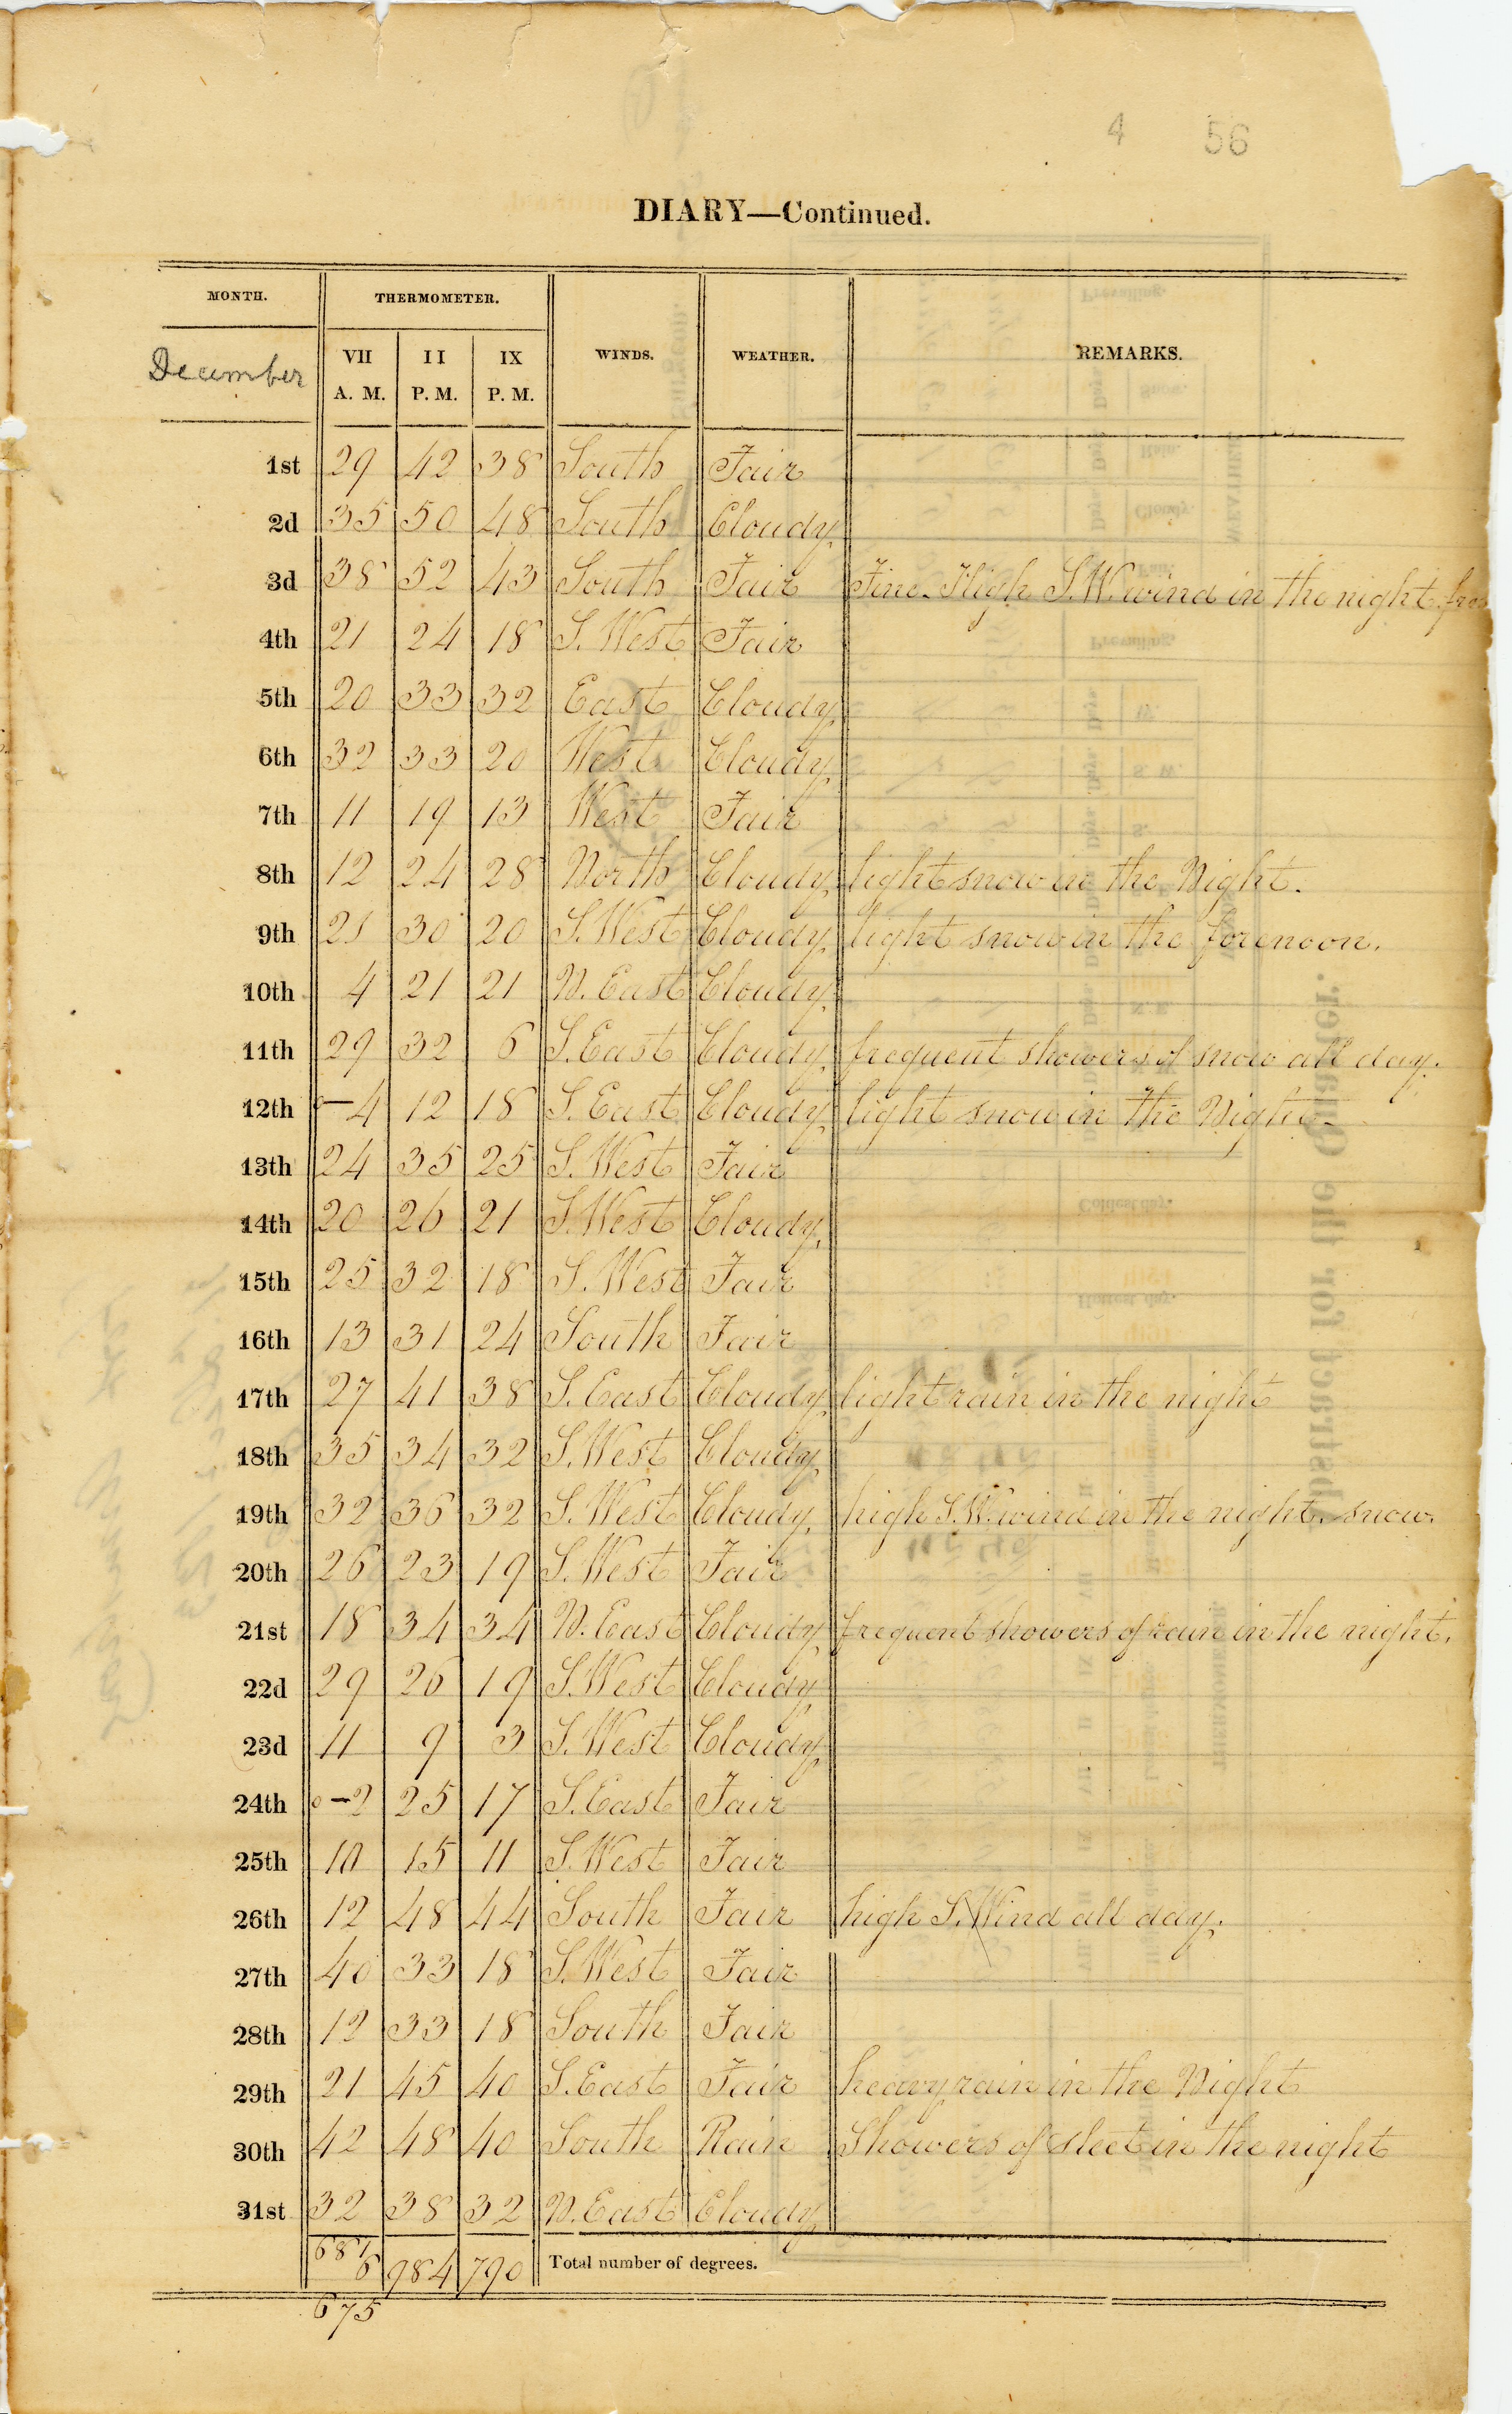 4 56
DIARY—Continued.
MONTH. THERMOMETER. WINDS. WEATHER. REMARKS.
December VII A. M. II P. M. IX P. M.
1st 29 42 38 South Fair
2d 35 50 48 South Cloudy
3d 38 52 43 South Fair Fine. High S.W. wind in the night.
4th 21 24 18 S. West Fair
5th 20 33 32 East Cloudy
6th 32 33 20 West Cloudy
7th 11 19 13 West Fair
8th 12 24 28 North Cloudy light snow in the Night.
9th 21 30 20 S. West Cloudy light snow in the forenoon.
10th 4 21 21 N. East Cloudy
11th 29 32 6 S. East Cloudy frequent showers of snow all day.
12th -4 12 18 S. East Cloudy light snow in the Night.
13th 24 35 25 S. West Fair
14th 20 26 21 S. West Cloudy
15th 25 32 18 S. West Fair
16th 13 31 24 South Fair
17th 27 41 38 S. East Cloudy light rain in the night
18th 35 34 32 S. West Cloudy
19th 32 36 32 S. West Cloudy high S.W. wind in the night. snow.
20th 26 23 19 S. West Fair
21st 18 34 34 N. East Cloudy frequent showers of rain in the night.
22d 29 26 19 S. West Cloudy
23d 11 9 3 S. West Cloudy
24th o-2 25 17 S. East Fair
25th 10 15 11 S. West Fair
26th 12 48 44 South Fair high S. Wind all day.
27th 40 33 18 S. West Fair
28th 12 33 18 South Fair
29th 21 45 40 S. East Fair heavy rain in the Night
30th 42 48 40 South Rain Showers of sleet in the night
31st 32 38 32 N. East Cloudy
681
6 984 790 Total number of degrees.
675